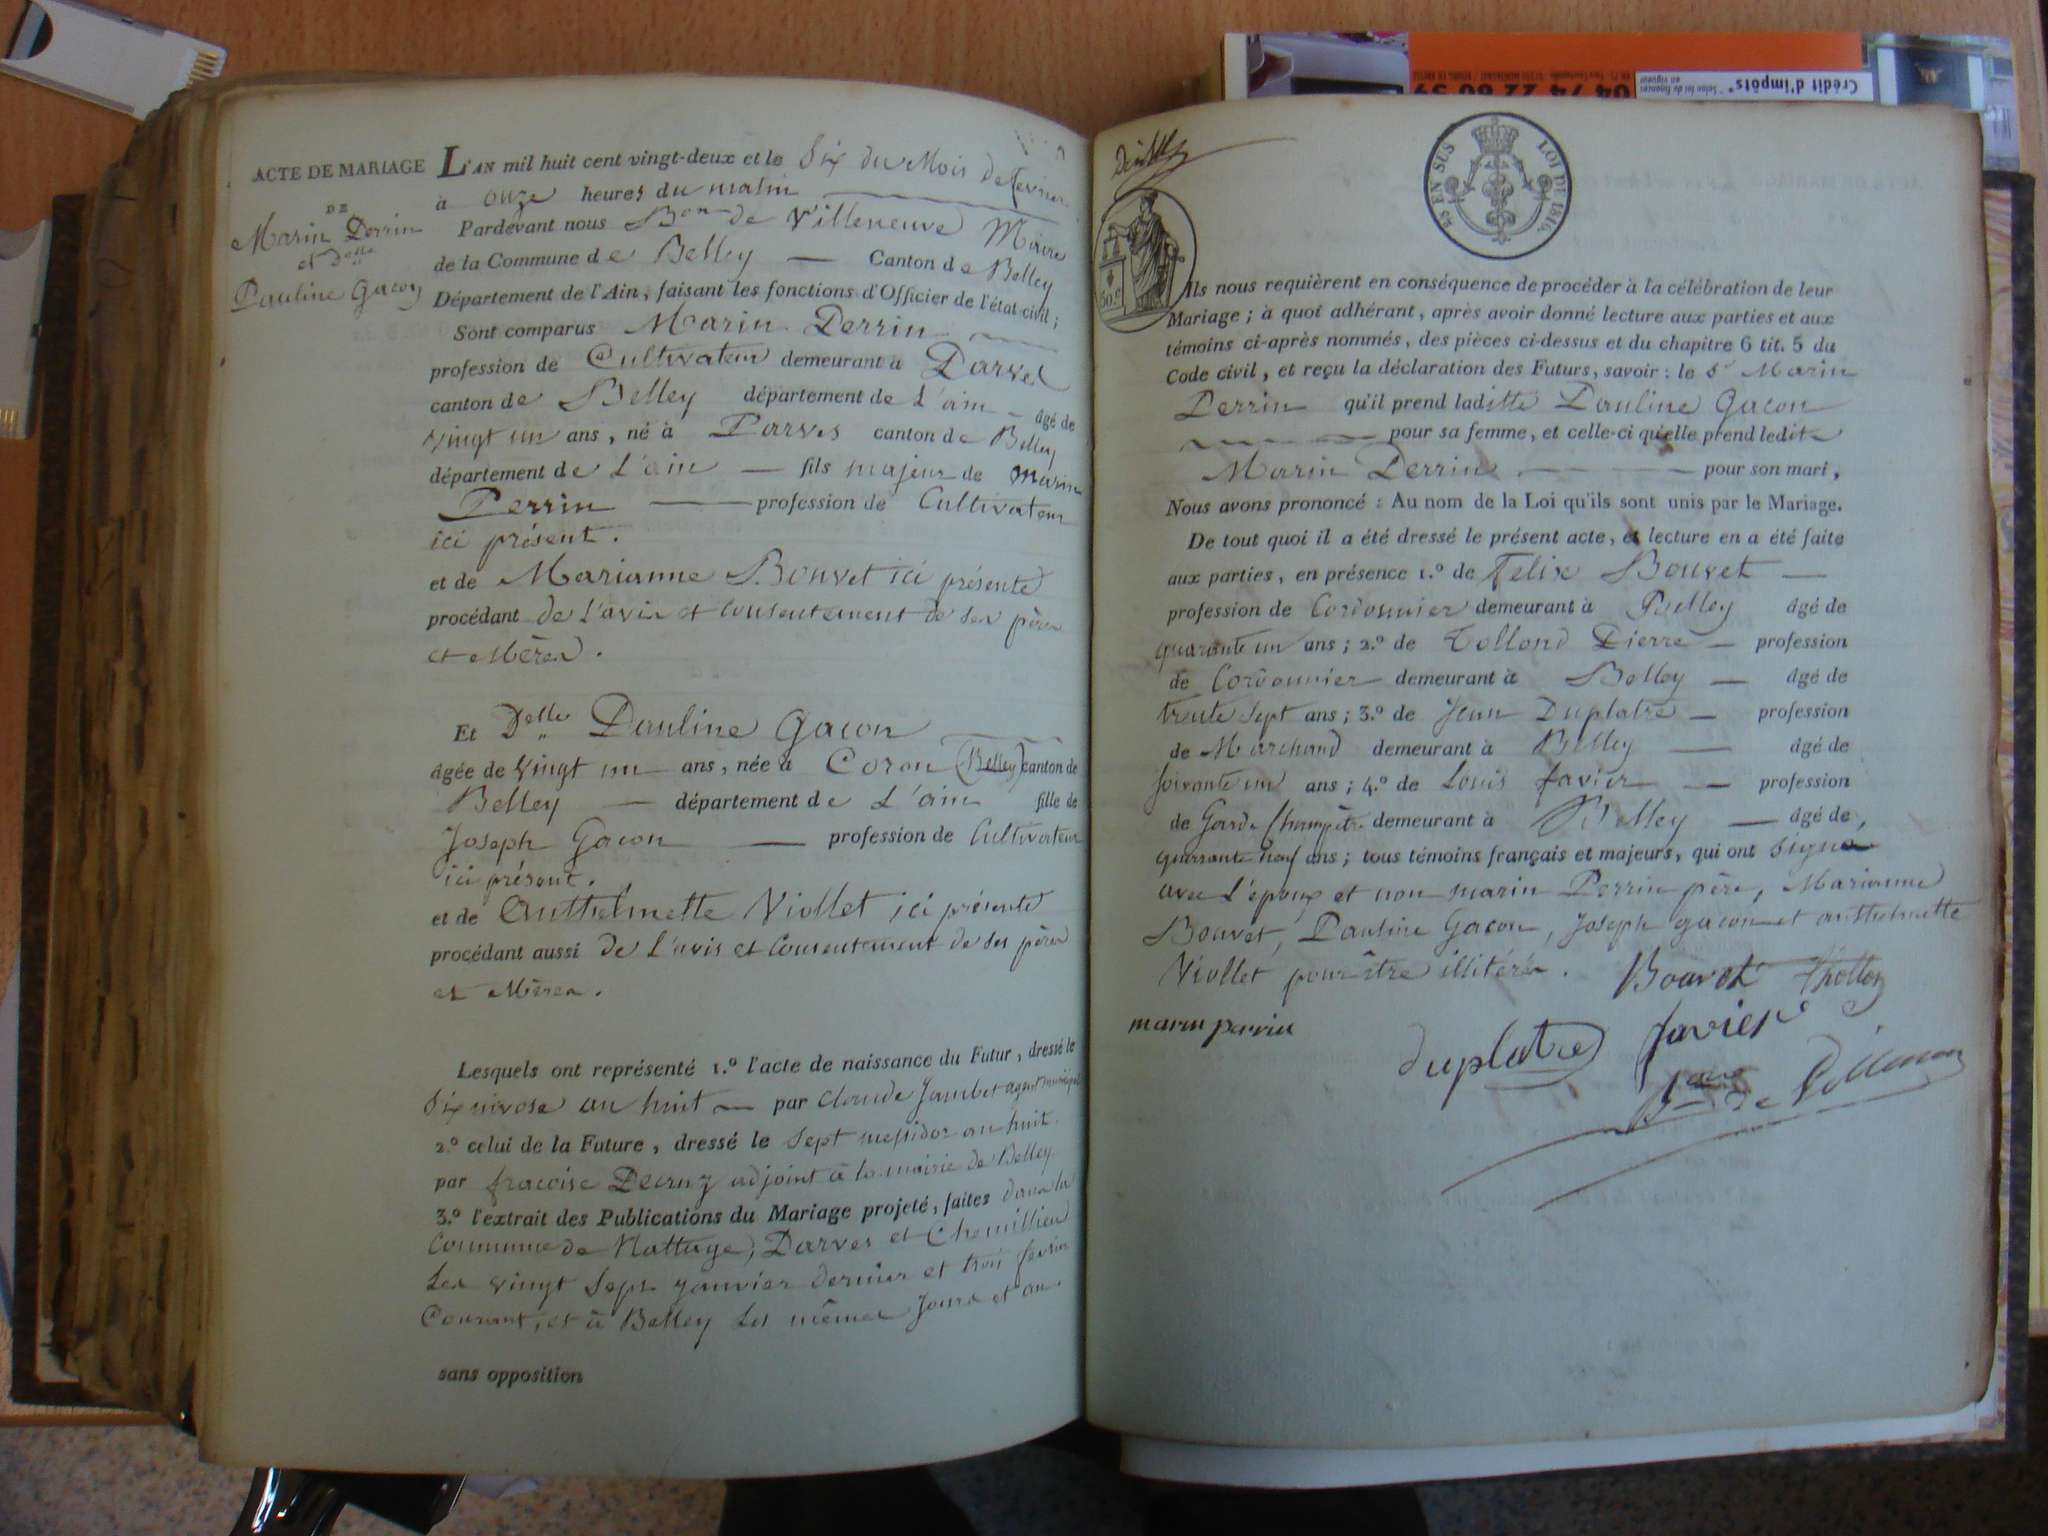 ACTE DE MARIAGE
DE
Marin Perrin
et Delle
Pauline Gacon
L'AN mil huit cent vingt-deux et le Six du Mois de fevrier
à onze heures du matin
Pardevant nous Bon de Villeneuve Maire
de la Commune de Belley — Canton de Belley
Département de l'Ain, faisant les fonctions d'Officier de l'état civil;
Sont comparus Marin Perrin
profession de Cultivateur demeurant à Parves
canton de Belley département de L'ain — âgé de
vingt un ans, né à Parves canton de Belley
département de L'ain — fils majeur de Marin
Perrin — profession de Cultivateur
ici présent.
et de Marianne Bouvet ici présente
procédant de L'avis et Consentement de ses père
et Mère.
Et Delle Pauline Gacon
âgée de vingt un ans, née à Coron (Belley) canton de
Belley — département de L'ain fille de
Joseph Gacon — profession de Cultivateur
ici présent.
et de Anthelmette Viollet ici présente
procédant aussi de L'avis et Consentement de ses père
et Mère.
Lesquels ont représenté 1.º l'acte de naissance du Futur, dressé le
Six nivose an huit — par Claude Jambet agent municipal
2.º celui de la Future, dressé le Sept messidor an huit
par adjoint à la mairie de Belley
3.º l'extrait des Publications du Mariage projeté, faites dans la
Commune de Nattage, Parves et Chemillieu
Les vingt Sept janvier dernier et trois fevrier
Courant, et à Belley Les mêmes Jours et an
sans opposition
43 EN SUS LOI DE 1816.
50 c
Ils nous requièrent en conséquence de procéder à la célébration de leur
Mariage; à quoi adhérant, après avoir donné lecture aux parties et aux
témoins ci-après nommés, des pièces ci-dessus et du chapitre 6 tit. 5 du
Code civil, et reçu la déclaration des Futurs, savoir: le Sr Marin
Perrin qu'il prend laditte Pauline Gacon
pour sa femme, et celle-ci qu'elle prend ledit
Marin Perrin — pour son mari,
Nous avons prononcé: Au nom de la Loi qu'ils sont unis par le Mariage.
De tout quoi il a été dressé le présent acte, et lecture en a été faite
aux parties, en présence 1.º de Felix Bouvet —
profession de Cordonnier demeurant à Belley âgé de
quarante un ans; 2.º de Tollond Pierre — profession
de Cordonnier demeurant à Belley — âgé de
trente Sept ans; 3.º de Jean Duplatre — profession
de Marchand demeurant à Belley — âgé de
soixante un ans; 4.º de Louis favier — profession
de Garde Champêtre demeurant à Belley — âgé de
quarante neuf ans; tous témoins français et majeurs, qui ont signé
avec L'époux et non marin Perrin père, Marianne
Bouvet, Pauline Gacon, Joseph gacon et anthelmette
Viollet pour être illitérés.
Bouvet thollon
marin perrin
duplatre favier
Bon de Villeneuve
Crédit d'impôts*
* Selon loi de finances en vigueur
04 74 22 60 59